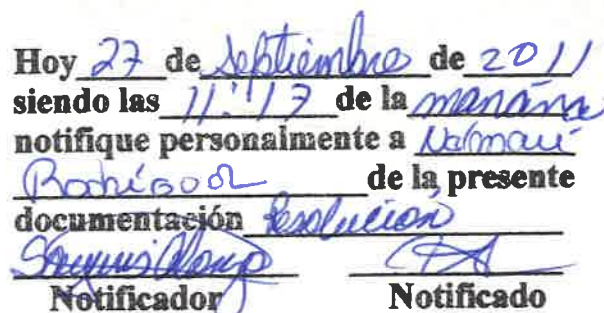 Hoy 27 de Septiembre de 2011
siendo las 11:17 de la mañana
notifique personalmente a
de la presente
documentación Resolución
Notificador Notificado